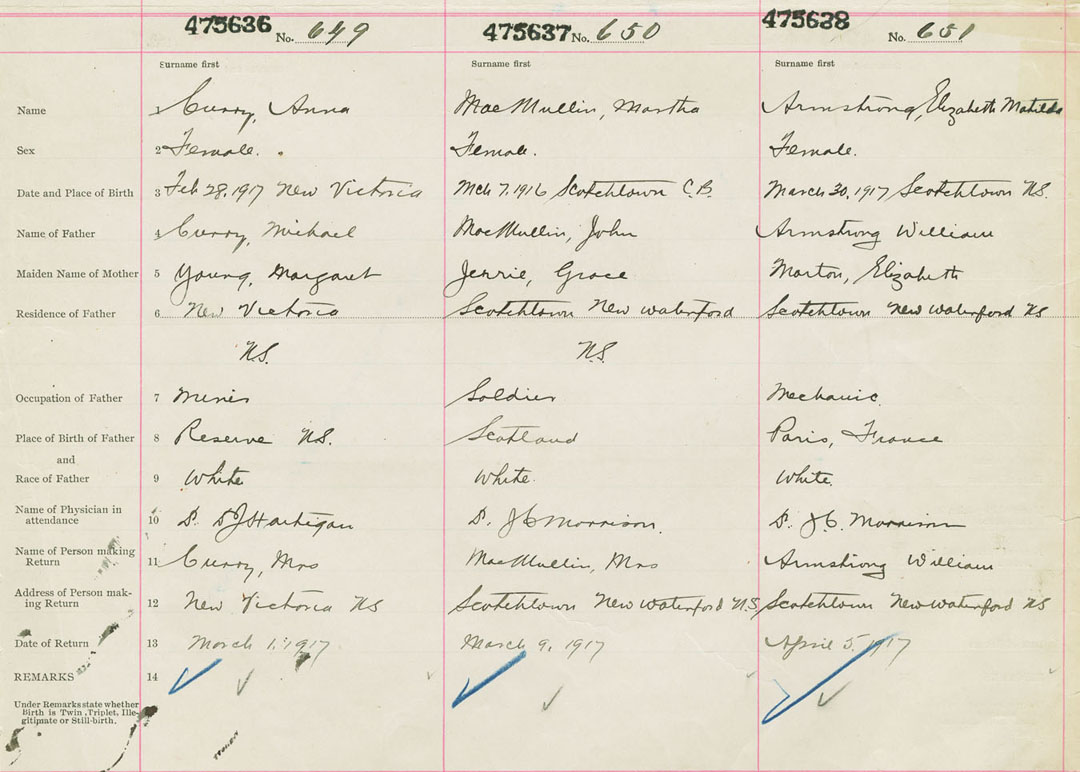 475636 No. 649 475637 No. 650 475638 No. 651
Surname first Surname first Surname first
Name 1 Curry, Anna MacMullin, Martha Armstrong, Elizabeth Matilda
Sex 2 Female. Female. Female.
Date and Place of Birth 3 Feb 28, 1917 New Victoria Mch 7, 1916 Scotchtown C.B. March 30, 1917 Scotchtown N.S.
Name of Father 4 Curry, Michael MacMullin, John Armstrong William
Maiden Name of Mother 5 Young, Margaret Grace Elizabeth
Residence of Father 6 New Victoria Scotchtown New Waterford Scotchtown New Waterford NS
N.S. N.S.
Occupation of Father 7 Miner Soldier Mechanic
Place of Birth of Father 8 Reserve N.S. Scotland Paris, France
and
Race of Father 9 White White White
Name of Physician in
attendance 10 Hartigan J C Morrison J. C. Morrison
Name of Person making
Return 11 Curry, Mrs MacMullin, Mrs Armstrong William
Address of Person mak-
ing Return 12 New Victoria NS Scotchtown New Waterford N.S. Scotchtown New Waterford NS
Date of Return 13 March 1, 1917 March 9, 1917 April 5, 1917
REMARKS 14
Under Remarks state whether
Birth is Twin, Triplet, Ille-
gitimate or Still-birth.